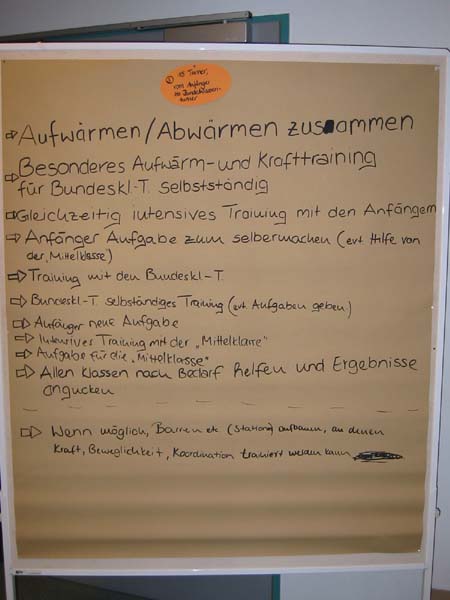 ② 15 Turner,
vom Anfänger
bis Bundesklassen-
turner
⇨ Aufwärmen/Abwärmen zusammen
⇨ Besonderes Aufwärm- und Krafttraining
für Bundeskl.-T. selbstständig
⇨ Gleichzeitig intensives Training mit den Anfängern
⇨ Anfänger Aufgabe zum selbermachen (evt. Hilfe von
der „Mittelklasse)
⇨ Training mit den Bundeskl.-T.
⇨ Bundeskl.-T. selbständiges Training (evt. Aufgaben geben)
⇨ Anfänger neue Aufgabe
⇨ Intensives Training mit der „Mittelklasse"
⇨ Aufgabe für die „Mittelklasse"
⇨ Allen Klassen nach Bedarf helfen und Ergebnisse
angucken
⇨ Wenn möglich, Barren etc. (Station) aufbauen, an denen
Kraft, Beweglichkeit, Koordination trainiert werden kann